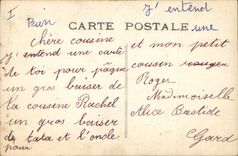 I j'entend
Pain une
CARTE POSTALE
Chère cousine
j'entend une carte
de toi pour pâque
un gros baiser de
ta cousine Rachel
un gros baiser
de tata et l'oncle
pour
et mon petit
cousin
Roger
Mademoiselle
Alice Bastide
Gard